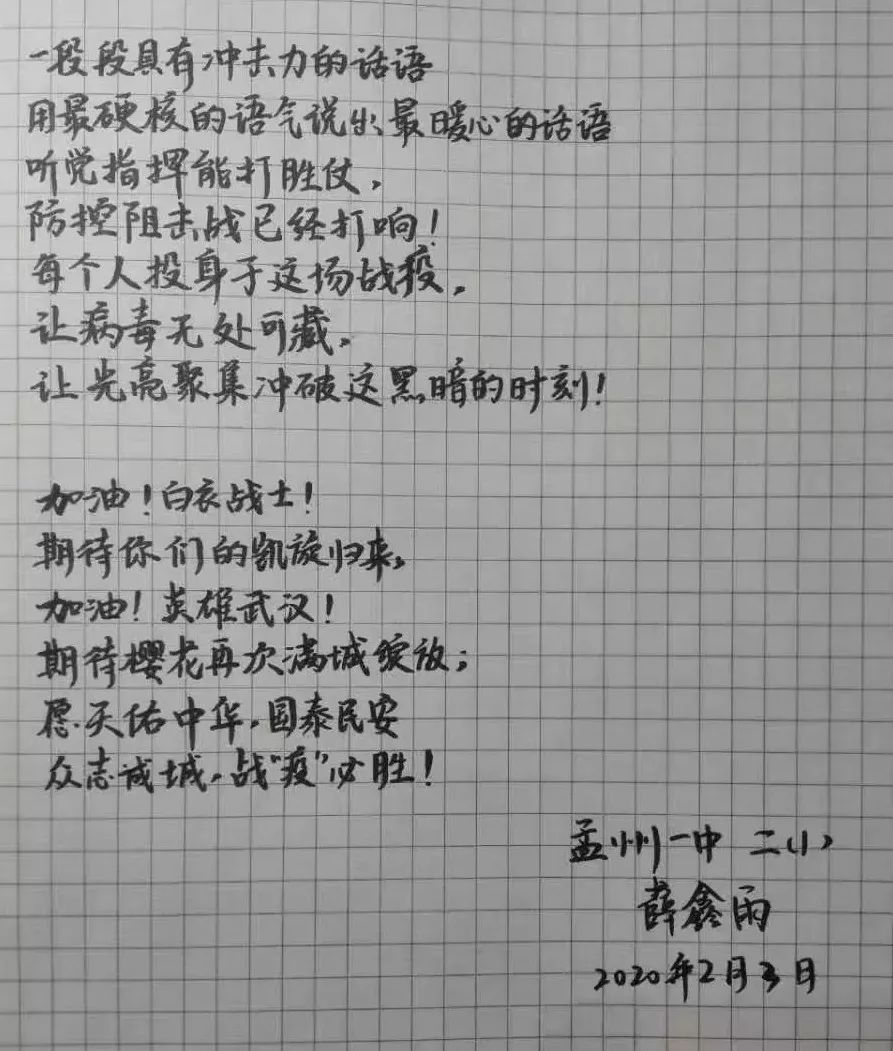 一段段具有冲击力的话语
用最硬核的语气说出最暖心的话语
听党指挥能打胜仗，
防控阻击战已经打响！
每个人投身于这场战疫，
让病毒无处可藏，
让光亮聚集冲破这黑暗的时刻！
加油！白衣战士！
期待你们的凯旋归来，
加油！英雄武汉！
期待樱花再次满城绽放；
愿天佑中华，国泰民安
众志诚城，战“疫”必胜！
孟州一中 二(1)
薛鑫雨
2020年2月3日